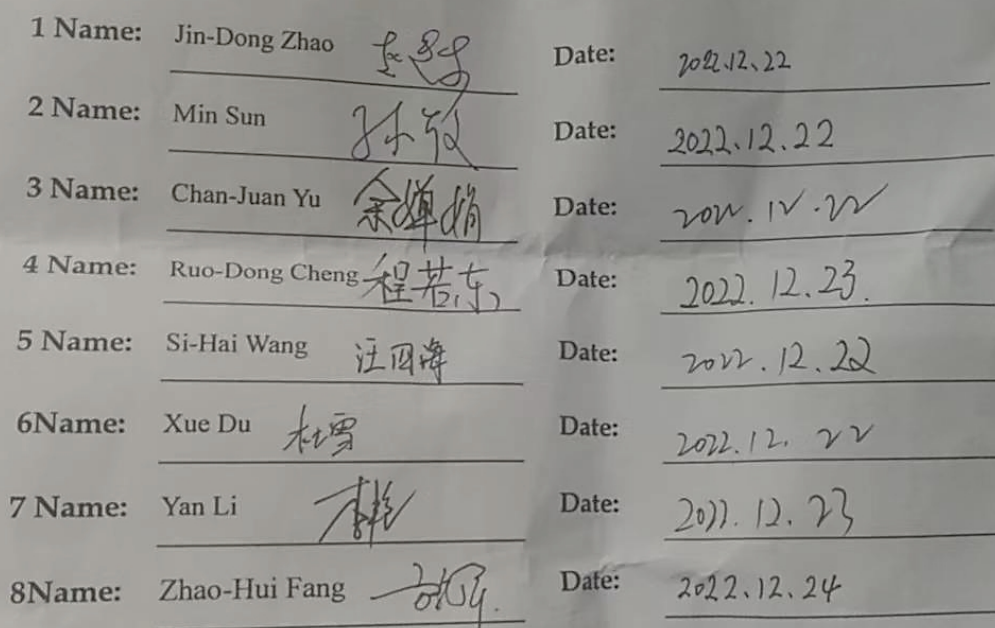 1 Name: Jin-Dong Zhao Date: 2022.12.22
2 Name: Min Sun 孙敏 Date: 2022.12.22
3 Name: Chan-Juan Yu 余婵娟 Date: 2022.12.22
4 Name: Ruo-Dong Cheng 程若东 Date: 2022.12.23.
5 Name: Si-Hai Wang 汪四海 Date: 2022.12.22
6Name: Xue Du 杜雪 Date: 2022.12.22
7 Name: Yan Li 李艳 Date: 2022.12.23
8Name: Zhao-Hui Fang Date: 2022.12.24